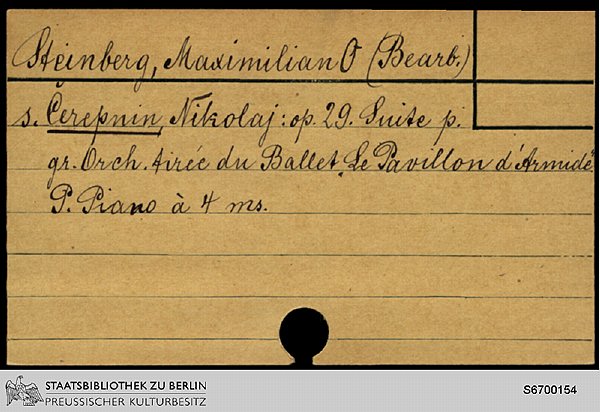 Steinberg, Maximilian O (Bearb.)
s. Cerepnin, Nikolaj: op. 29. Suite p.
gr. Orch. tirée du Ballet „Le Pavillon d'Armide“
P. Piano à 4 ms.
STAATSBIBLIOTHEK ZU BERLIN
PREUSSISCHER KULTURBESITZ
S6700154